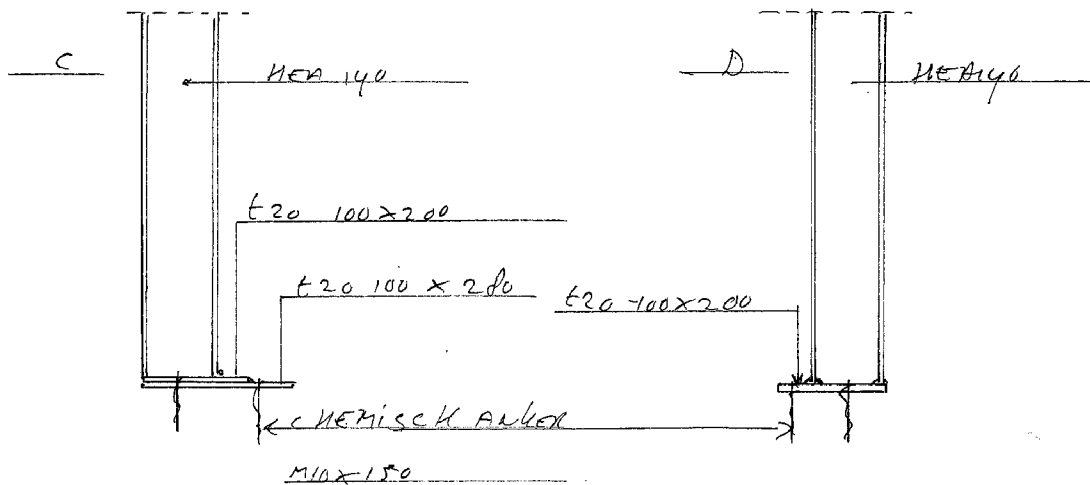 C
HEA 140
D
HEA140
t20 100×200
t20 100 × 280
t20 100×200
CHEMISCH ANKER
M10×150